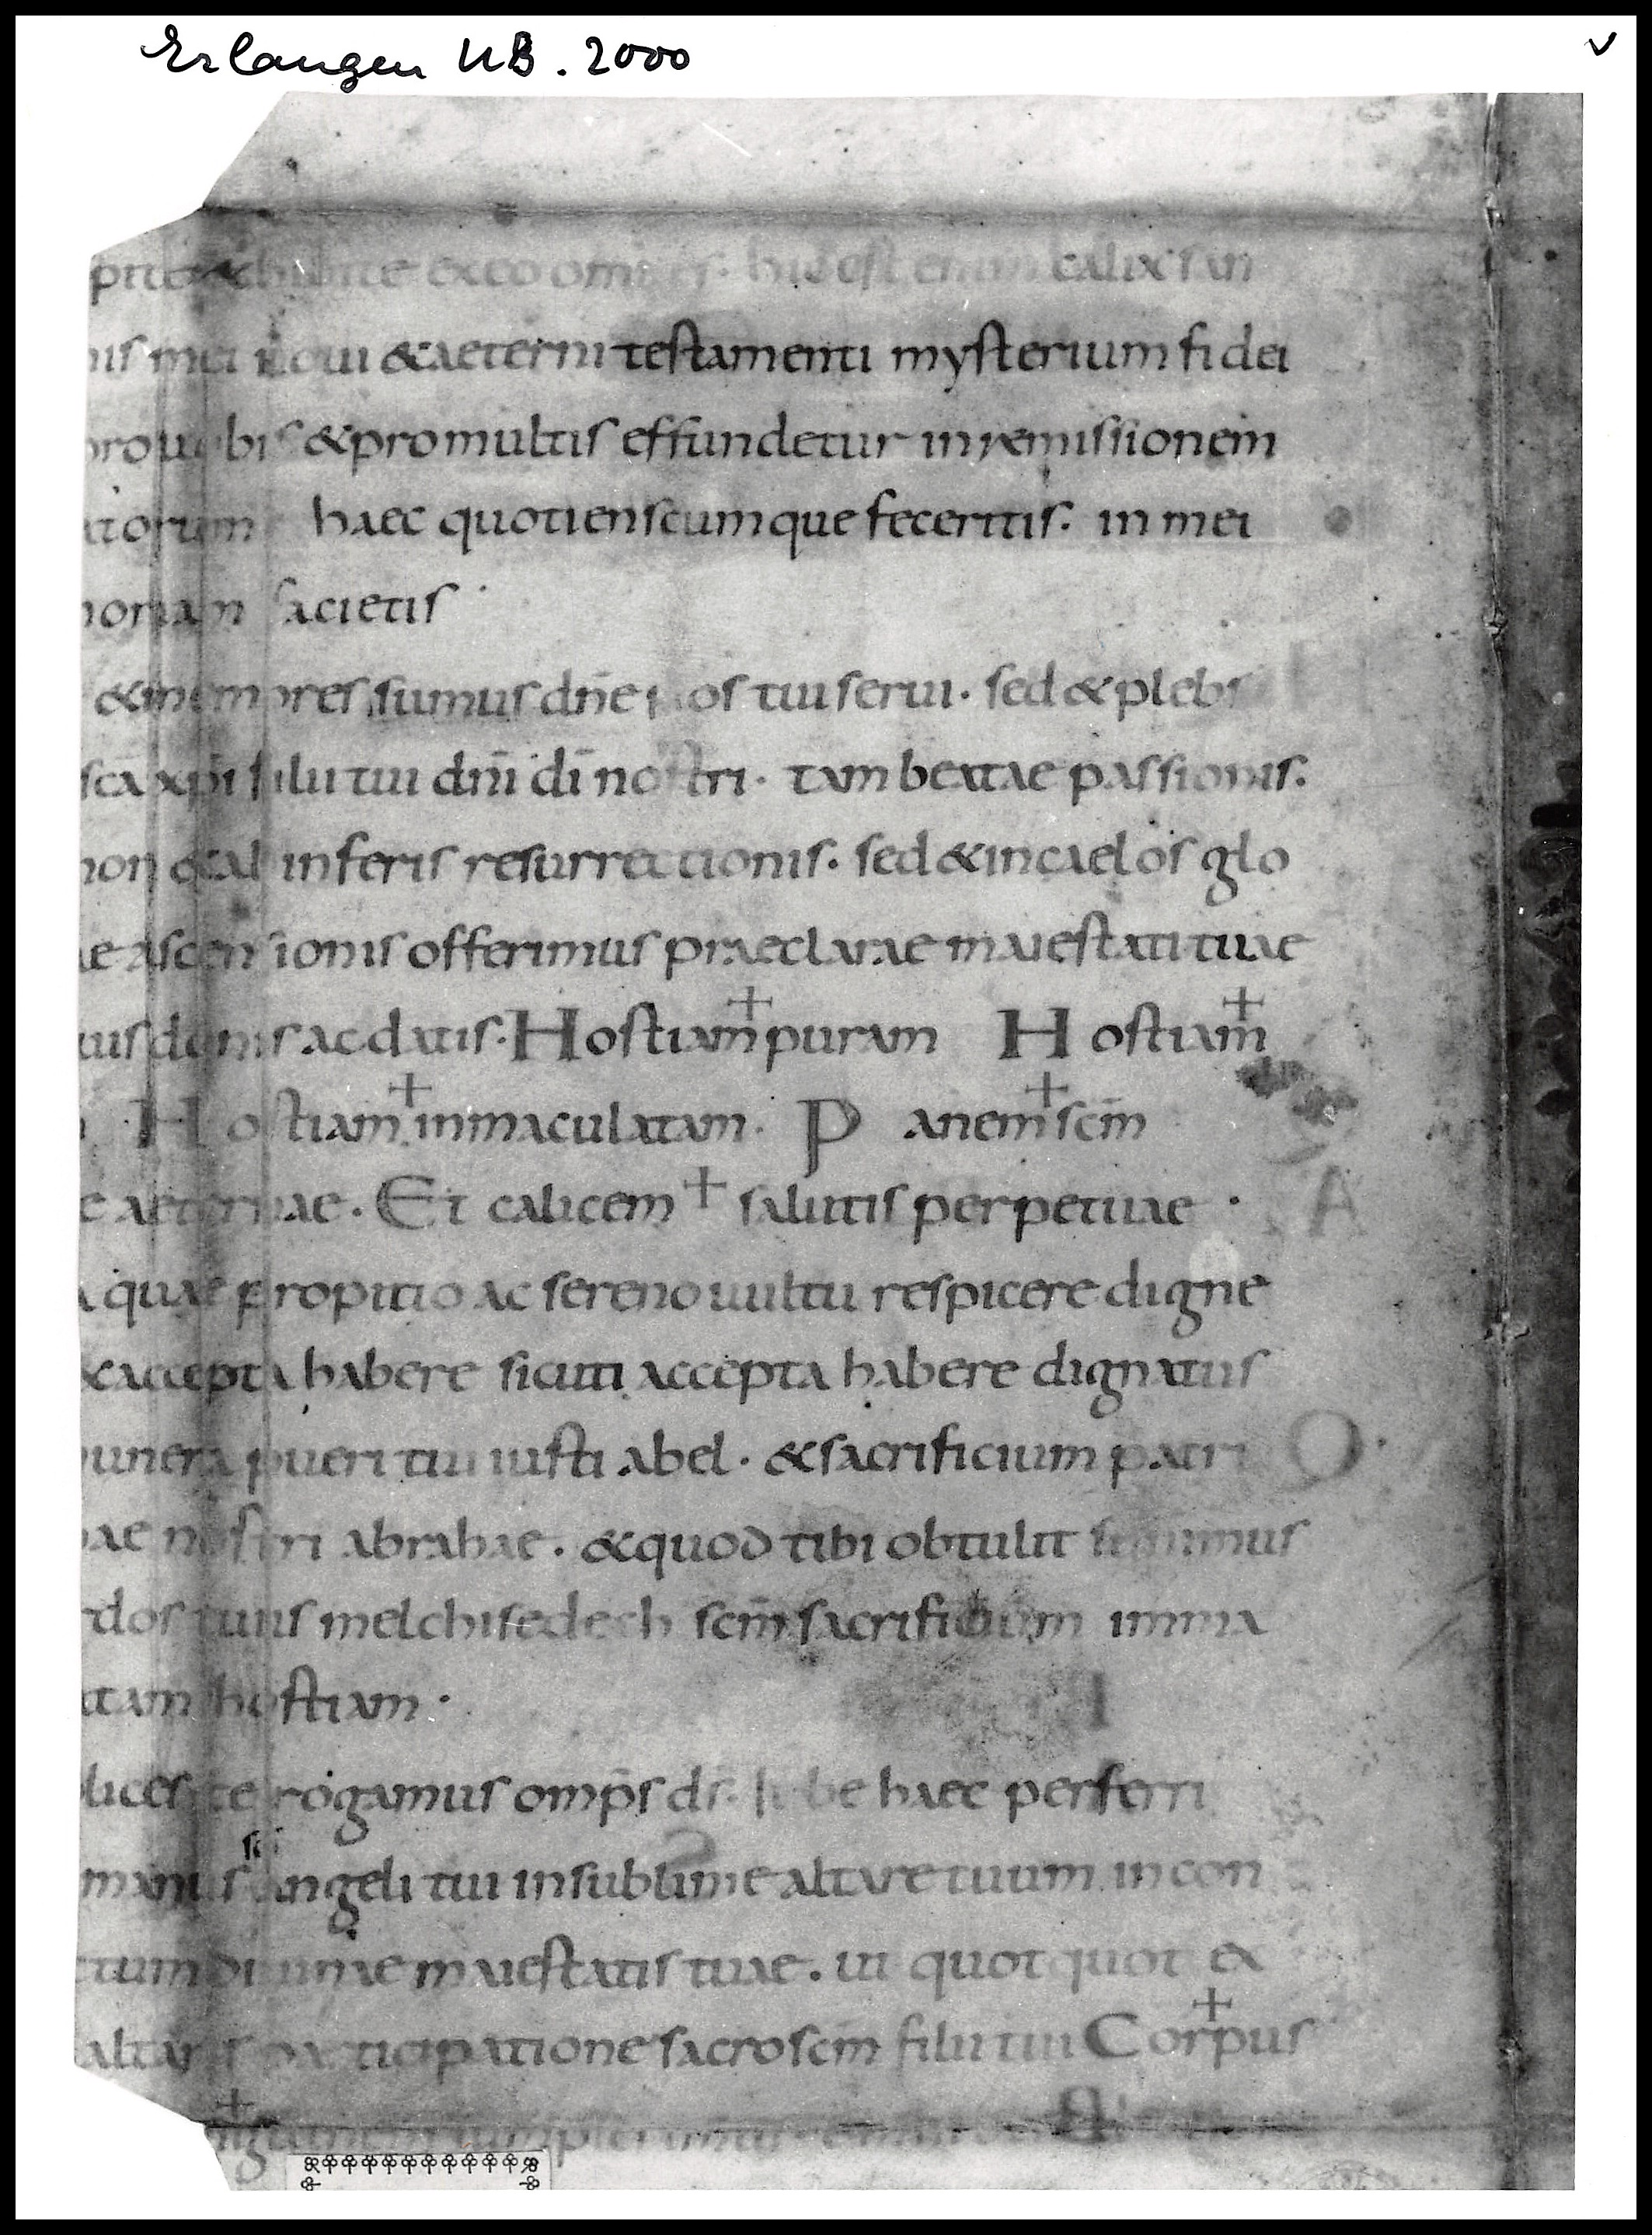 Erlangen UB. 2000 v
pite & bibite ex eo omnes. hic est enim calix san
nis mei noui & aeterni testamenti mysterium fidei
pro uobis & pro multis effundetur in remissionem
atorum haec quotienscumque feceritis. in mei
moriam facietis
& memores sumus dn̄e nos tui serui. sed & plebs
scā xpī filii tui dnī dī nostri. tam beatae passionis.
non & ab inferis resurrectionis. sed & in caelos glo
ae ascensionis offerimus praeclarae maiestati tuae
uis donis ac datis. Hostiam + puram Hostiam +
Hostiam + immaculatam. Panem + scm̄
e aeternae. Et calicem + salutis perpetuae.
a quae propitio ac sereno uultu respicere digne
& accepta habere sicuti accepta habere dignatus
munera pueri tui iusti abel. & sacrificium patri
hae nostri abrahae. & quod tibi obtulit summus
rdos tuus melchisedech scm̄ sacrificium imma
atam hostiam.
plices te rogamus omp̄s ds̄. Iube haec perferri
manus sci angeli tui in sublime altare tuum in con
ctum diuinae maiestatis tuae. ut quotquot ex
altaris participatione sacroscm̄ filii tui Cor+pus